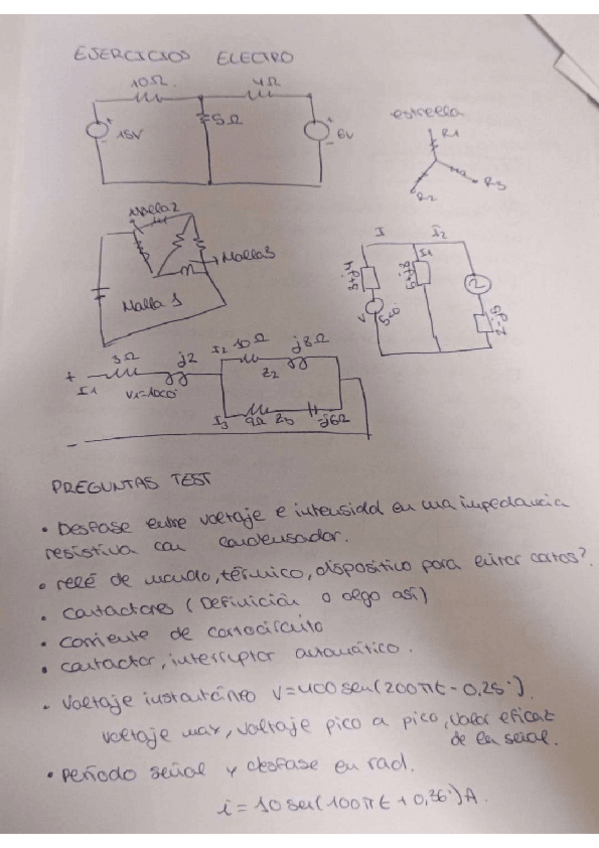 EJERCICIOS ELECTRO
10Ω 4Ω
15V 5Ω 6V
estrella
R1
R2 R3
Malla 2
Malla 3
Malla 1
I I2
I1
V
3Ω j2 I2 10Ω j8Ω
+ I1 V1=100∠0° Z2
I3 9Ω Z3 -j6Ω
-
PREGUNTAS TEST
• Desfase entre voltaje e intensidad en una impedancia
resistiva con condensador.
• relé de mando, térmico, dispositivo para evitar cortos?
• contactores (Definición o algo así)
• corriente de cortocircuito
• contactor, interruptor automático.
• Voltaje instantáneo V=400 sen(200πt - 0,25°).
voltaje max, voltaje pico a pico, valor eficaz
de la señal.
• Período señal y desfase en rad.
i = 10 sen(100πt + 0,36°) A.